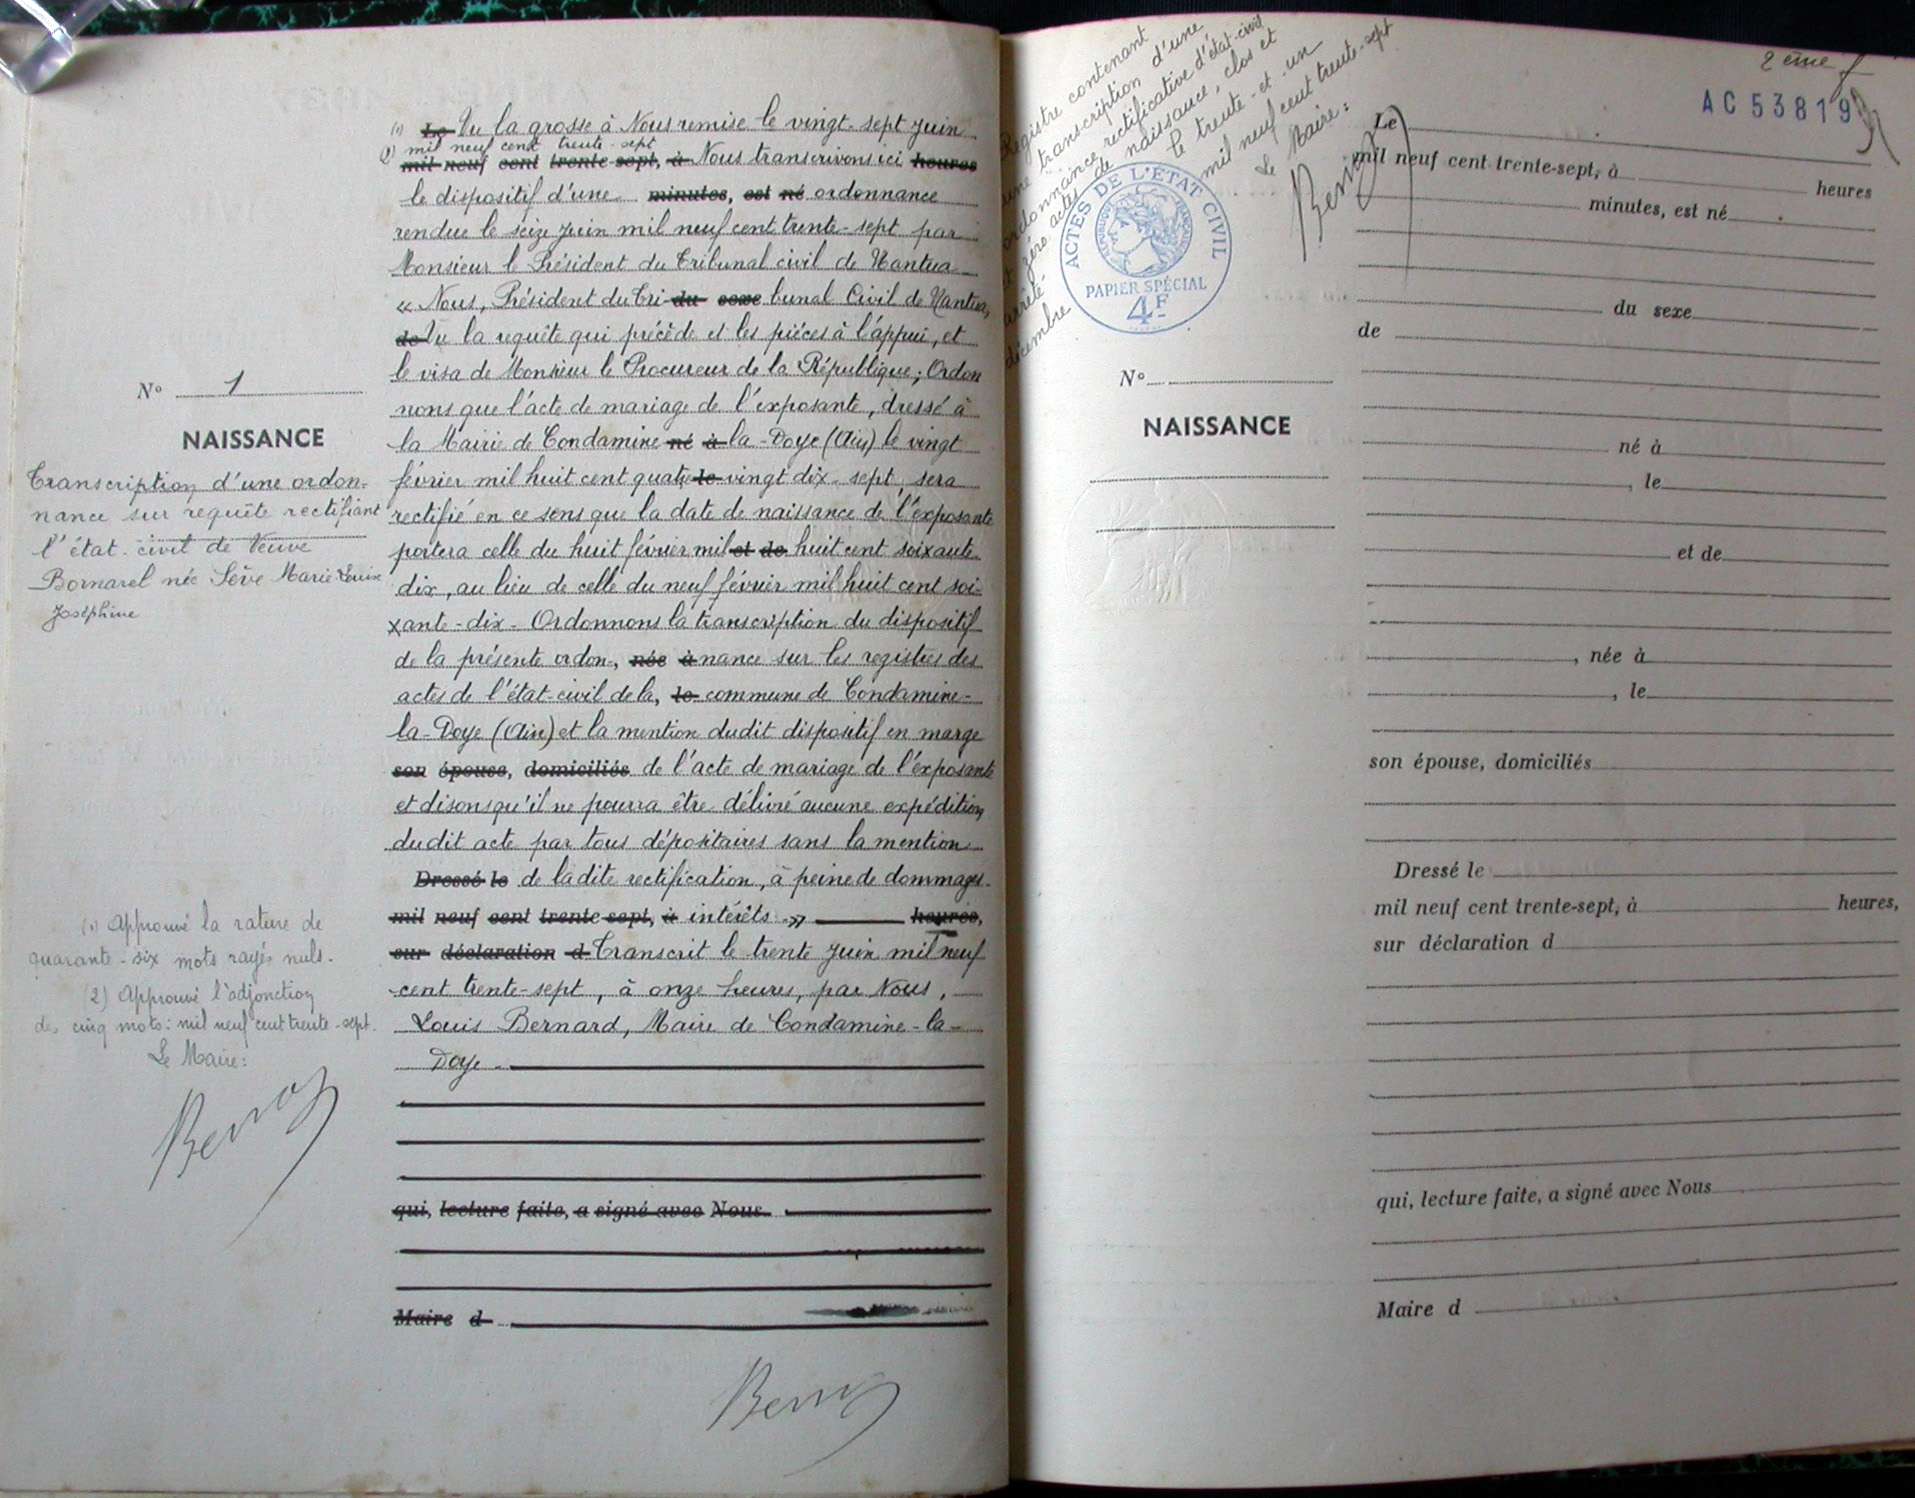 N° 1
NAISSANCE
Transcription d'une ordon-
nance sur requête rectifiant
l'état-civil de Veuve
Bornarel née Sève Marie Louise
Joséphine
(1) Approuvé la rature de
quarante-six mots rayés nuls.
(2) Approuvé l'adjonction
des cinq mots: mil neuf cent trente-sept.
Le Maire:
(1) Le Vu la grosse à Nous remise le vingt-sept juin
(2) mil neuf cent trente-sept
mil neuf cent trente-sept, à Nous transcrivons ici heures
le dispositif d'une minutes, est né ordonnance
rendue le seize juin mil neuf cent trente-sept par
Monsieur le Président du Tribunal civil de Nantua
« Nous, Président du Tri du sexe bunal Civil de Nantua,
de Vu la requête qui précède et les pièces à l'appui, et
le visa de Monsieur le Procureur de la République; Ordon
nons que l'acte de mariage de l'exposante, dressé à
la Mairie de Condamine né à la-Doye (Ain) le vingt
février mil huit cent quatre le vingt dix-sept, sera
rectifié en ce sens que la date de naissance de l'exposante
portera celle du huit février mil et de huit cent soixante
dix, au lieu de celle du neuf février mil huit cent soi-
xante-dix- Ordonnons la transcription du dispositif
de la présente ordon-, née à nance sur les registres des
actes de l'état-civil de la, le commune de Condamine-
la-Doye (Ain) et la mention dudit dispositif en marge
son épouse, domiciliés de l'acte de mariage de l'exposante
et disons qu'il ne pourra être délivré aucune expédition
dudit acte par tous dépositaires sans la mention
Dressé le de ladite rectification, à peine de dommages-
mil neuf cent trente-sept, à intérêts » heures,
sur déclaration d Transcrit le trente juin mil neuf
cent trente-sept, à onze heures, par Nous,
Louis Bernard, Maire de Condamine-la-
Doye.
qui, lecture faite, a signé avec Nous
Maire d
Registre contenant
une transcription d'une
ordonnance rectificative d'état-civil
et zéro actes de naissance, clos et
arrêté le trente-et-un
décembre mil neuf cent trente-sept
Le Maire:
ACTES DE L'ÉTAT CIVIL
RÉPUBLIQUE FRANÇAISE
PAPIER SPÉCIAL
4F
N°
NAISSANCE
2ème f
AC 53819
Le
mil neuf cent trente-sept, à heures
minutes, est né
du sexe
de
né à
, le
et de
, née à
, le
son épouse, domiciliés
Dressé le
mil neuf cent trente-sept, à heures,
sur déclaration d
qui, lecture faite, a signé avec Nous
Maire d